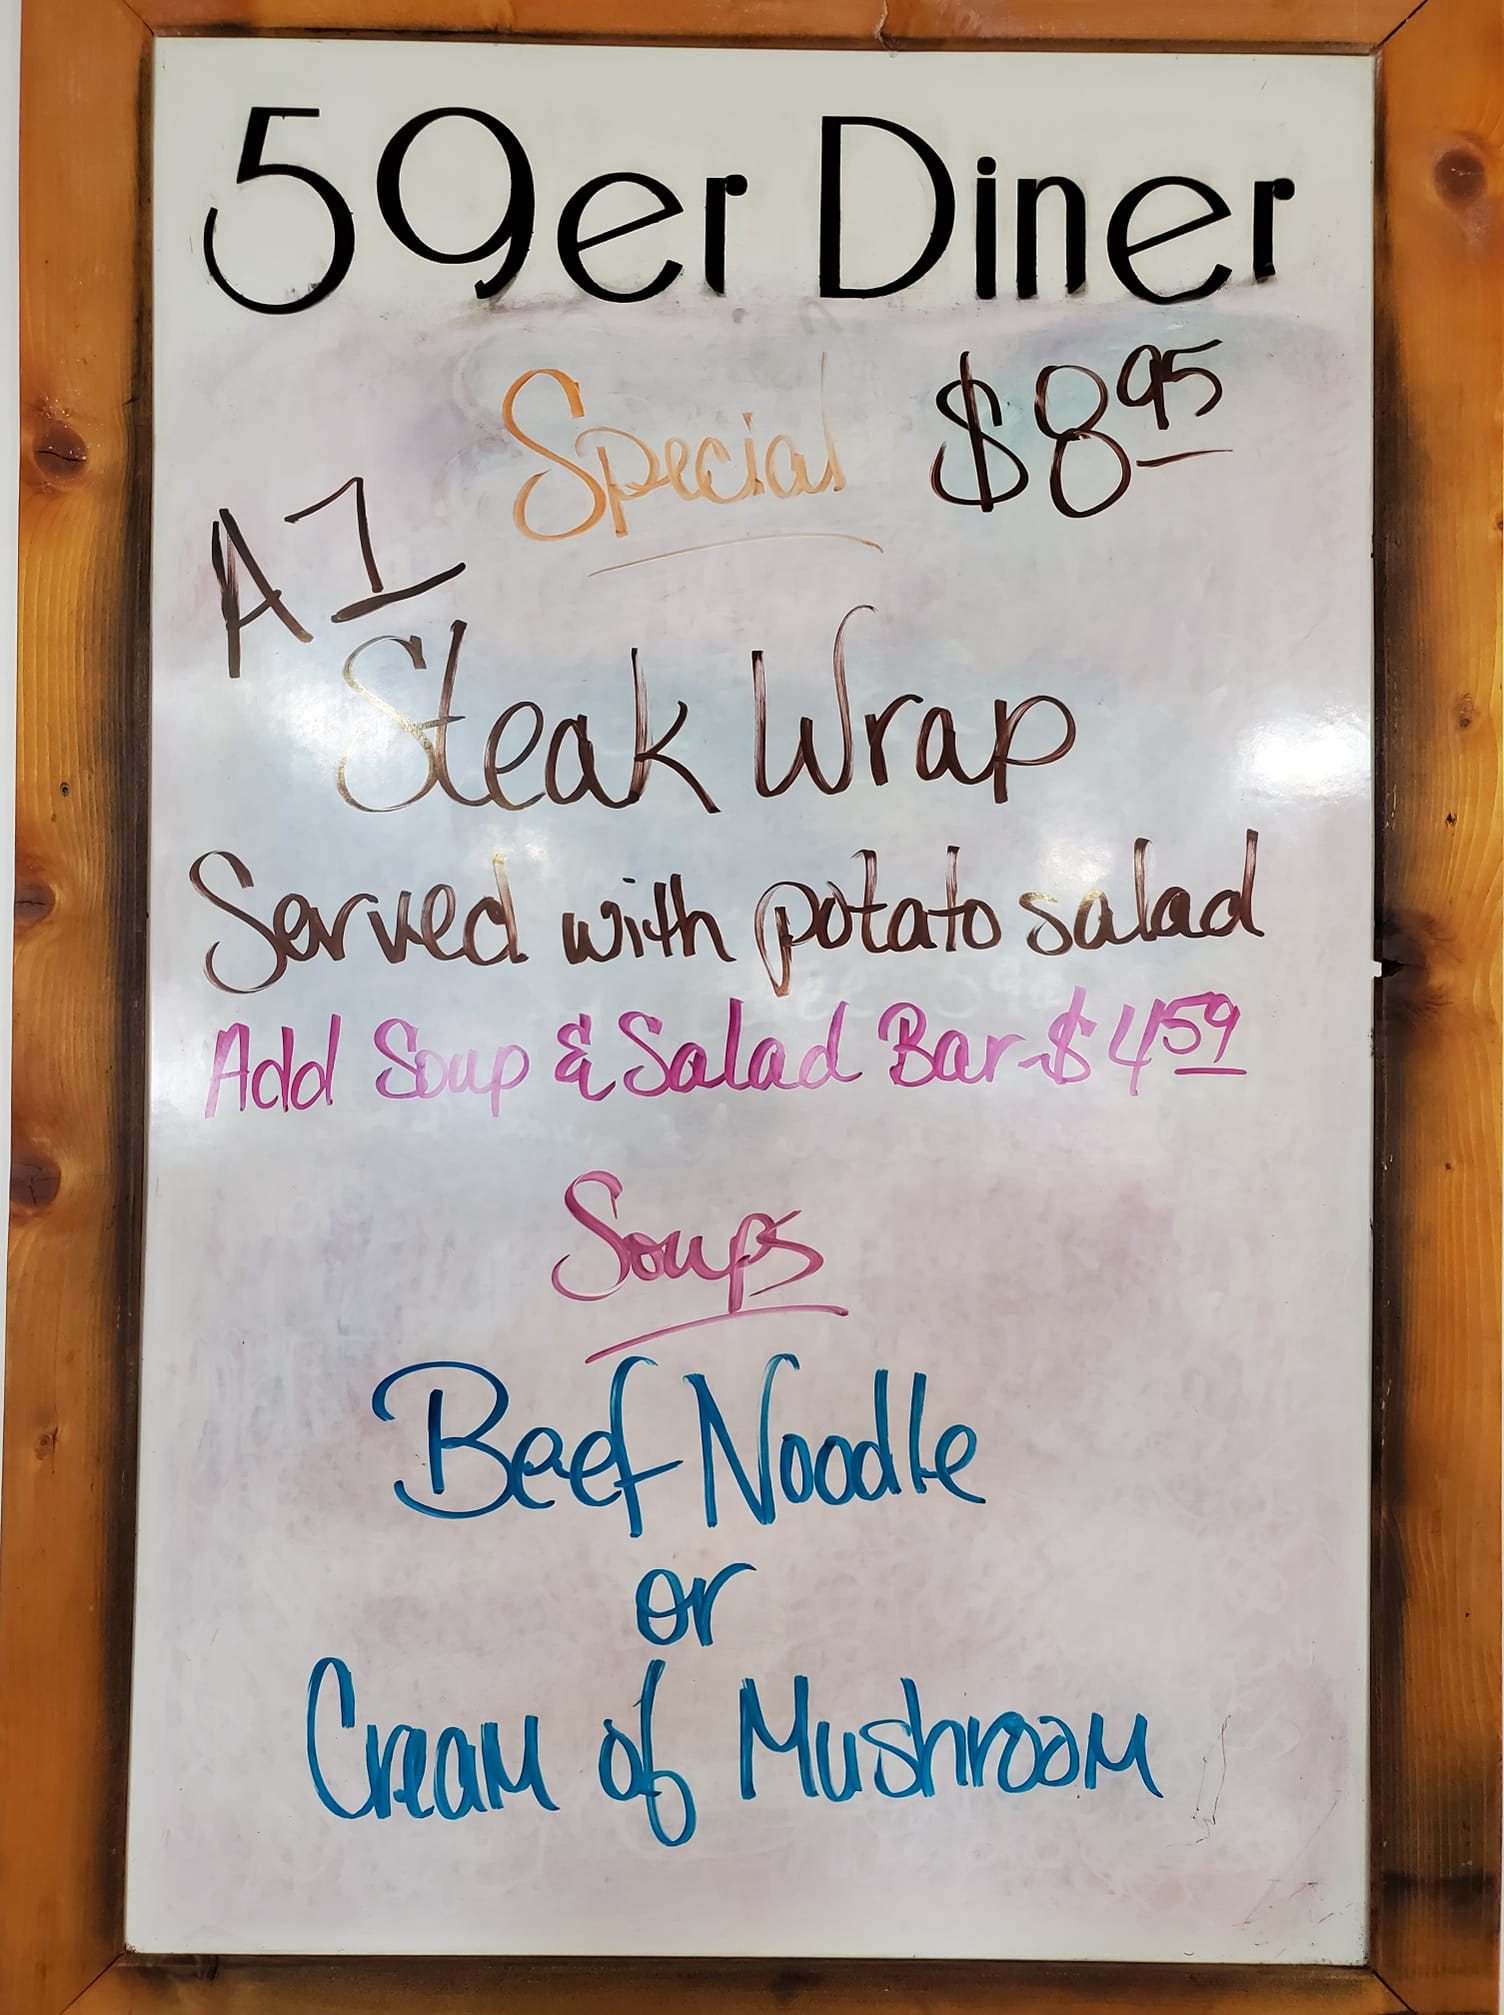 59er Diner
Special $8.95
A1
Steak Wrap
Served with potato salad
Add Soup & Salad Bar-$4.59
Soups
Beef Noodle
or
Cream of Mushroom